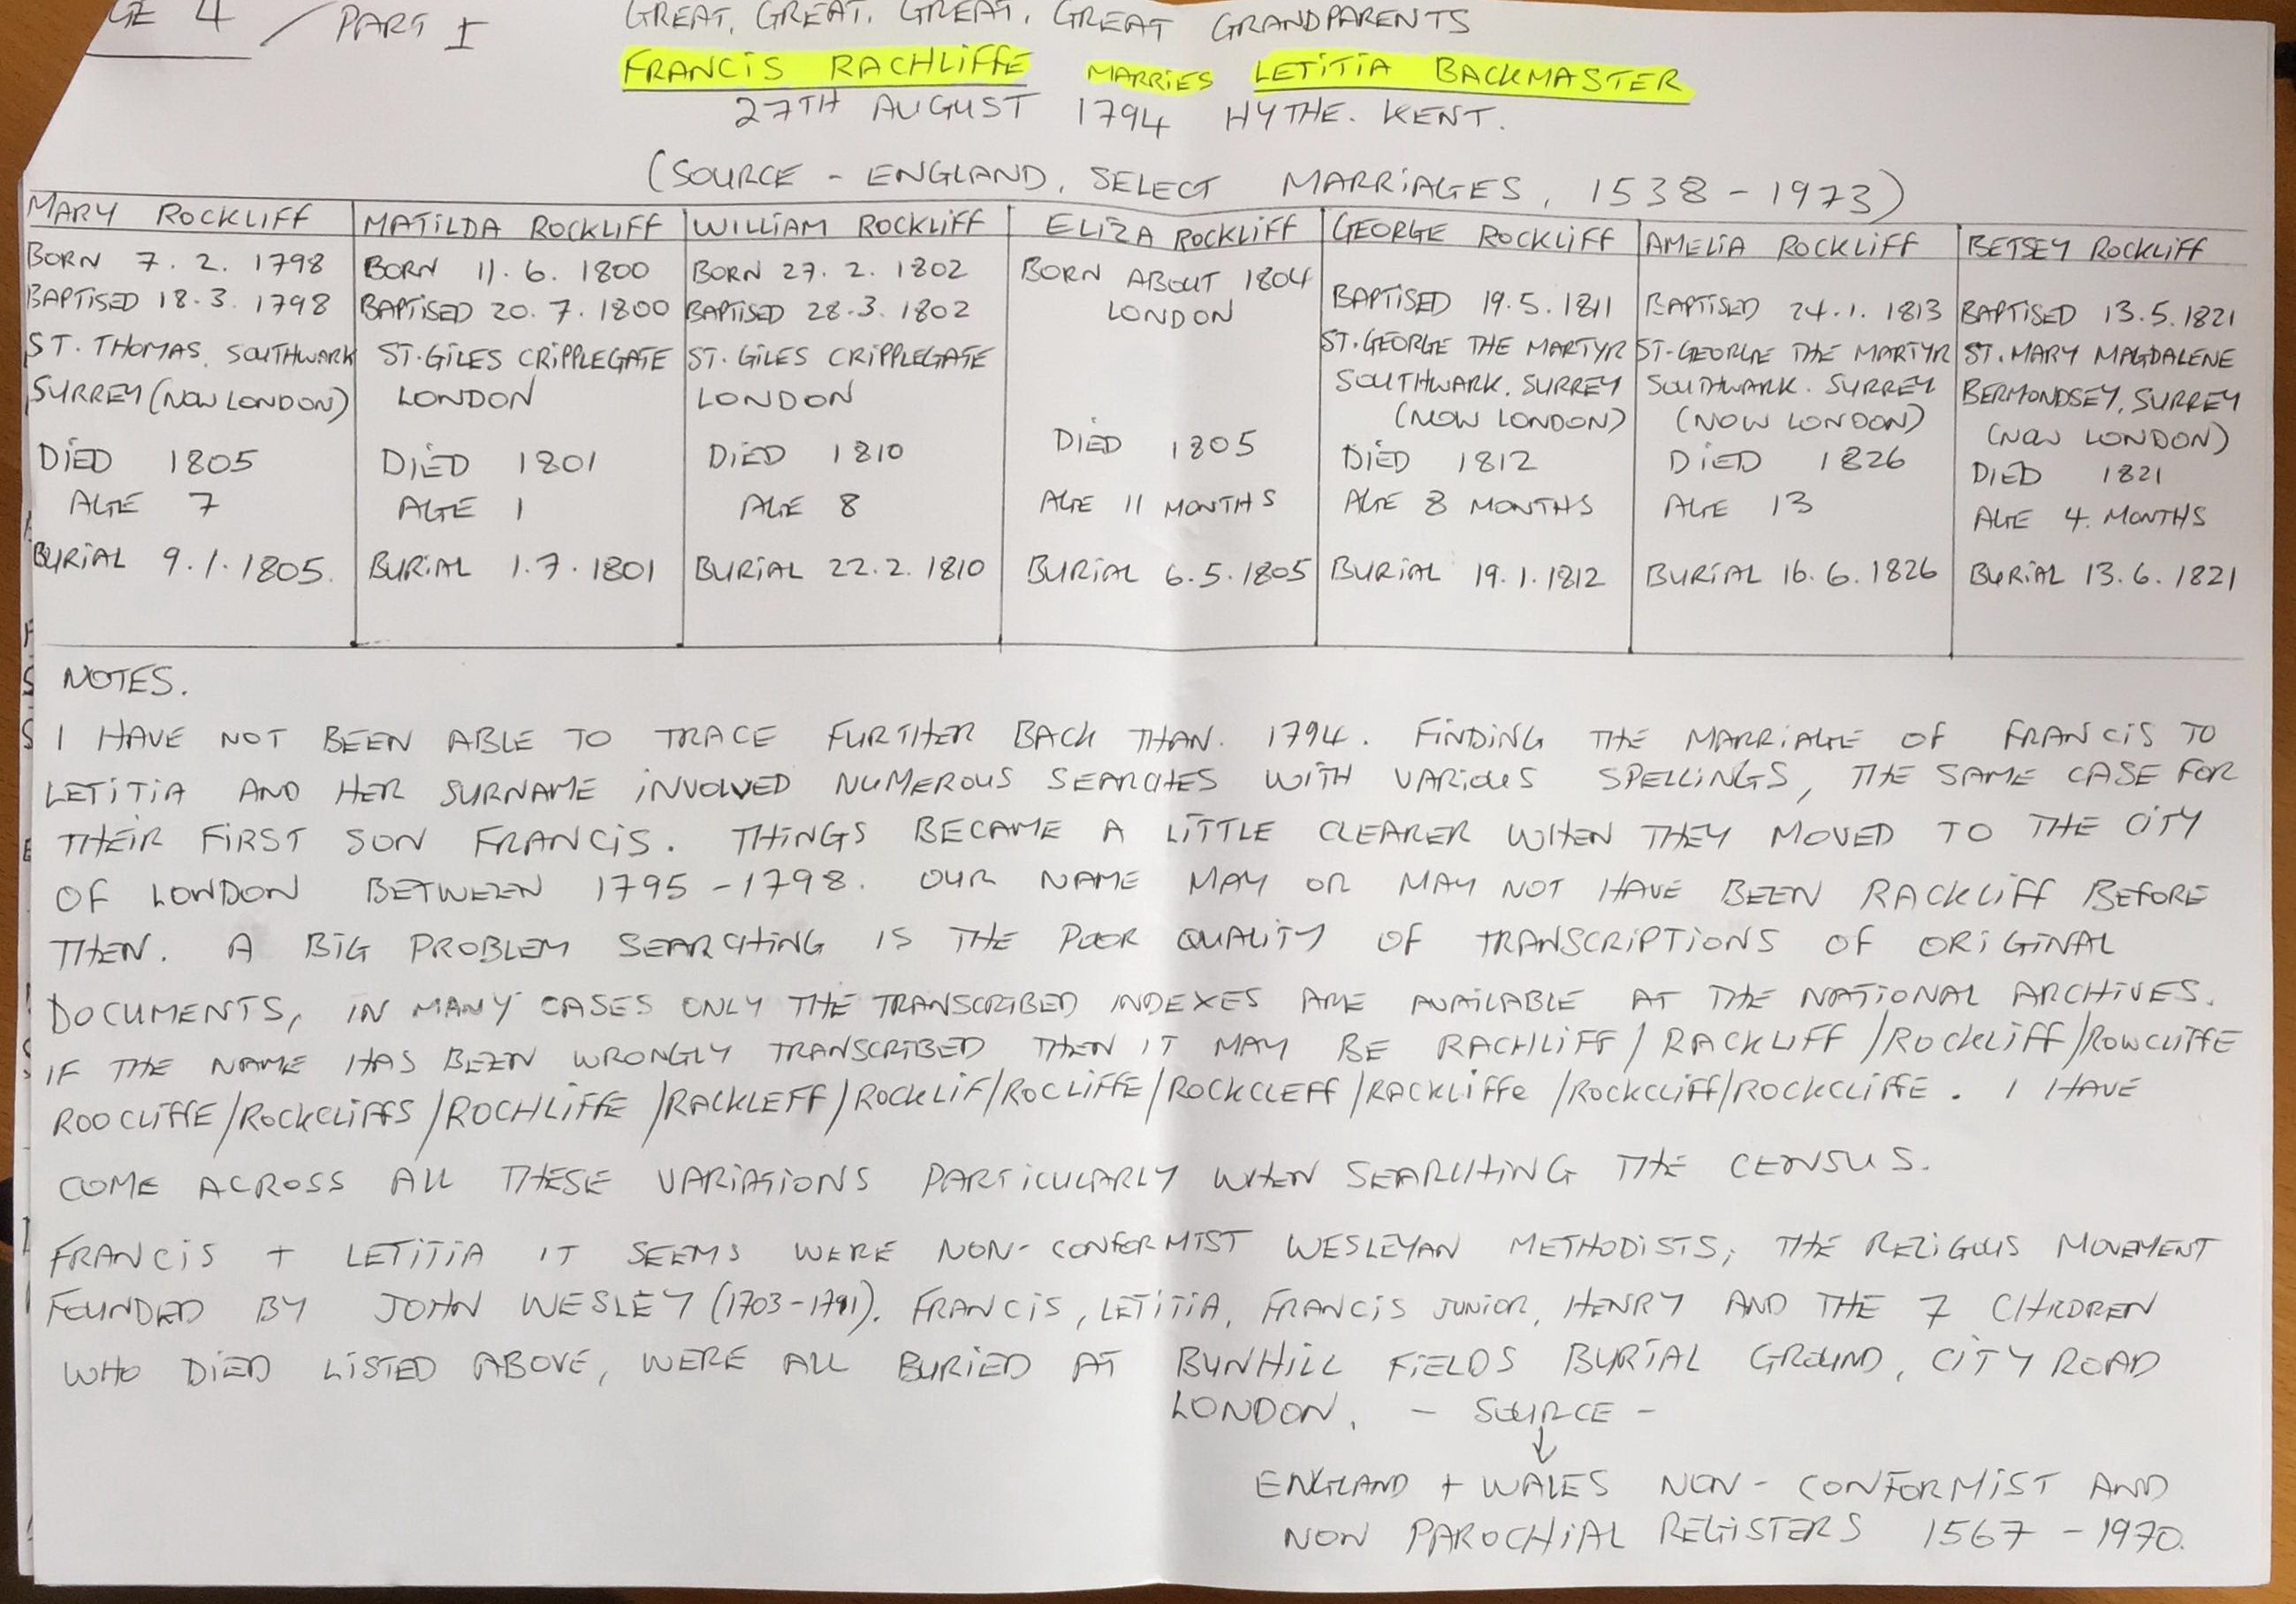 GE 4 / PART I
GREAT, GREAT, GREAT, GREAT GRANDPARENTS
FRANCIS RACHLIFFE MARRIES LETITIA BACKMASTER
27TH AUGUST 1794 HYTHE. KENT.
(SOURCE - ENGLAND, SELECT MARRIAGES, 1538-1973)
MARY ROCKLIFF
BORN 7. 2. 1798
BAPTISED 18.3. 1798
ST. THOMAS. SOUTHWARK
SURREY (NOW LONDON)
DIED 1805
AGE 7
BURIAL 9.1.1805.
MATILDA ROCKLIFF
BORN 11.6. 1800
BAPTISED 20. 7. 1800
ST. GILES CRIPPLEGATE
LONDON
DIED 1801
AGE 1
BURIAL 1.7.1801
WILLIAM ROCKLIFF
BORN 27. 2. 1802
BAPTISED 28.3. 1802
ST. GILES CRIPPLEGATE
LONDON
DIED 1810
AGE 8
BURIAL 22.2.1810
ELIZA ROCKLIFF
BORN ABOUT 1804
LONDON
DIED 1805
AGE 11 MONTHS
BURIAL 6.5.1805
GEORGE ROCKLIFF
BAPTISED 19.5.1811
ST. GEORGE THE MARTYR
SOUTHWARK. SURREY
(NOW LONDON)
DIED 1812
AGE 8 MONTHS
BURIAL 19.1.1812
AMELIA ROCKLIFF
BAPTISED 24.1. 1813
ST-GEORGE THE MARTYR
SOUTHWARK. SURREY
(NOW LONDON)
DIED 1826
AGE 13
BURIAL 16.6.1826
BETSEY ROCKLIFF
BAPTISED 13.5.1821
ST. MARY MAGDALENE
BERMONDSEY, SURREY
(NOW LONDON)
DIED 1821
AGE 4. MONTHS
BURIAL 13.6.1821
NOTES.
I HAVE NOT BEEN ABLE TO TRACE FURTHER BACK THAN. 1794. FINDING THE MARRIAGE OF FRANCIS TO
LETITIA AND HER SURNAME INVOLVED NUMEROUS SEARCHES WITH VARIOUS SPELLINGS, THE SAME CASE FOR
THEIR FIRST SON FRANCIS. THINGS BECAME A LITTLE CLEARER WHEN THEY MOVED TO THE CITY
OF LONDON BETWEEN 1795-1798. OUR NAME MAY OR MAY NOT HAVE BEEN RACKLIFF BEFORE
THEN. A BIG PROBLEM SEARCHING IS THE POOR QUALITY OF TRANSCRIPTIONS OF ORIGINAL
DOCUMENTS, IN MANY CASES ONLY THE TRANSCRIBED INDEXES ARE AVAILABLE AT THE NATIONAL ARCHIVES.
IF THE NAME HAS BEEN WRONGLY TRANSCRIBED THEN IT MAY BE RACHLIFF/RACKLIFF/ROCKLIFF/ROWCLIFFE
ROOCLIFFE/ROCKCLIFFS/ROCHLIFFE/RACKLEFF/ROCKLIF/ROCLIFFE/ROCKCLEFF/RACKLIFFE/ROCKCLIFF/ROCKCLIFFE. I HAVE
COME ACROSS ALL THESE VARIATIONS PARTICULARLY WHEN SEARCHING THE CENSUS.
FRANCIS + LETITIA IT SEEMS WERE NON-CONFORMIST WESLEYAN METHODISTS, THE RELIGOUS MOVEMENT
FOUNDED BY JOHN WESLEY (1703-1791). FRANCIS, LETITIA, FRANCIS JUNIOR, HENRY AND THE 7 CHILDREN
WHO DIED LISTED ABOVE, WERE ALL BURIED AT BUNHILL FIELDS BURIAL GROUND, CITY ROAD
LONDON. - SOURCE -
↓
ENGLAND + WALES NON-CONFORMIST AND
NON PAROCHIAL REGISTERS 1567-1970.